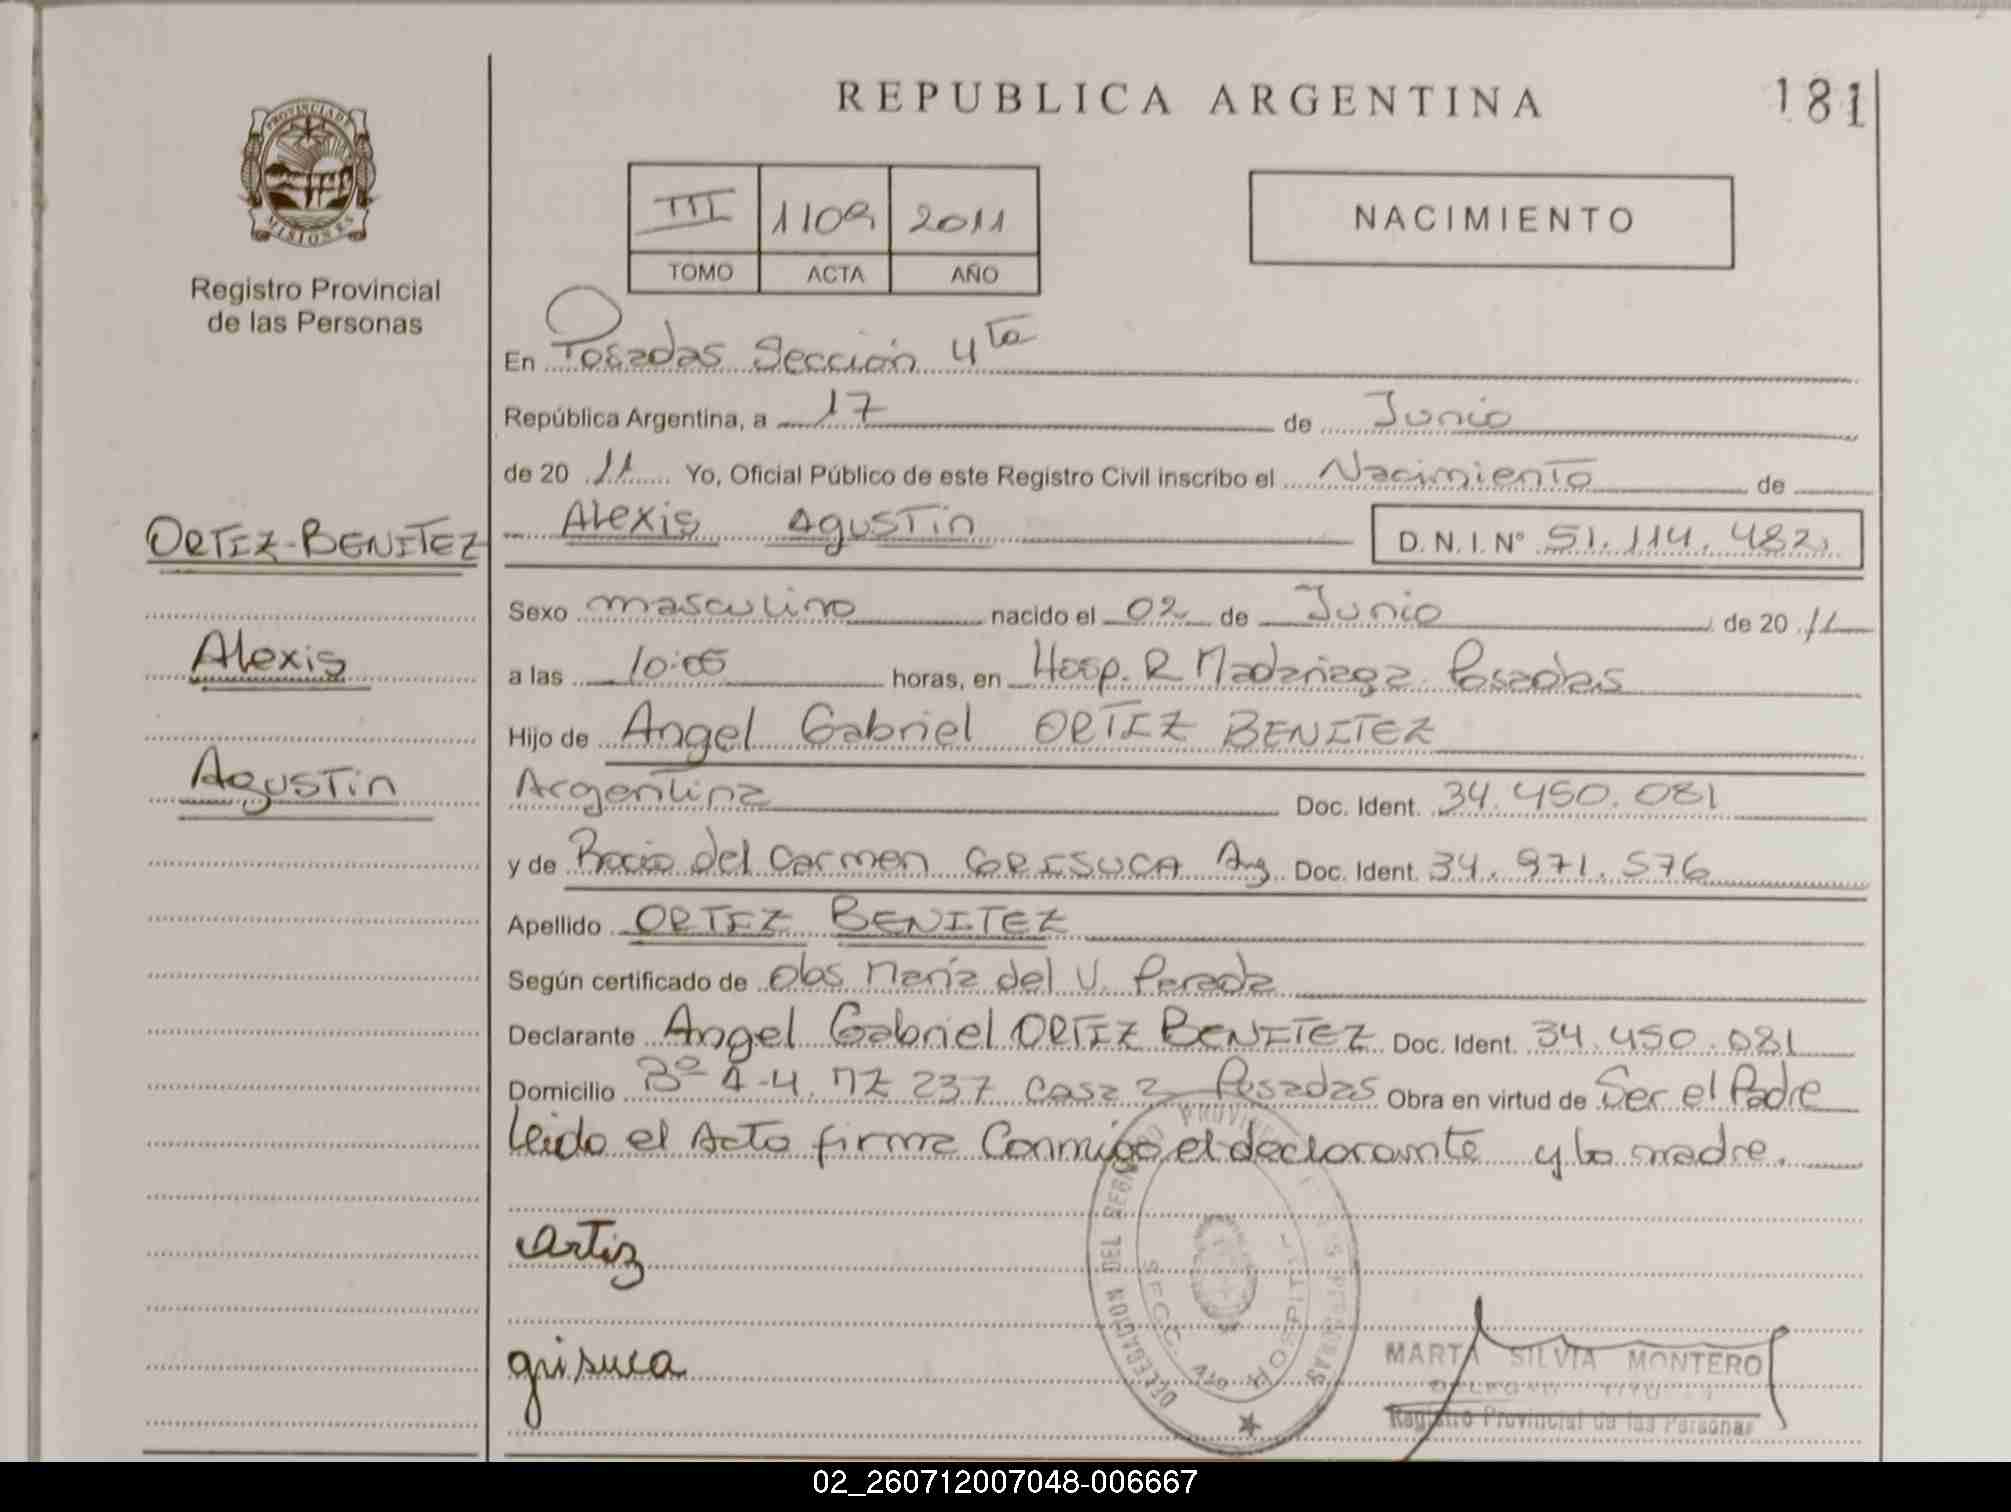 REPUBLICA ARGENTINA
181
PROVINCIA DE MISIONES
Registro Provincial
de las Personas
III 1109 2011
TOMO ACTA AÑO
NACIMIENTO
En Posadas Sección 4ta
República Argentina, a 17 de Junio
de 20 11 Yo, Oficial Público de este Registro Civil inscribo el Nacimiento de
Alexis Agustin D.N.I. Nº 51.114.482
ORTIZ-BENITEZ
Alexis
Agustin
Sexo masculino nacido el 02 de Junio de 20 11
a las 10:05 horas, en Hosp. R Madariaga Posadas
Hijo de Angel Gabriel ORTIZ BENITEZ
Argentina Doc. Ident. 34.450.081
y de Rocio del Carmen GRISUCA Arg. Doc. Ident. 34.971.576
Apellido ORTIZ BENITEZ
Según certificado de Obs Maria del V. Pereda
Declarante Angel Gabriel ORTIZ BENITEZ Doc. Ident. 34.450.081
Domicilio Bº A-4. MZ 237 Casa 2 Posadas Obra en virtud de Ser el Padre
Leido el Acto firma Conmigo el declarante y la madre.
Ortiz
grisuca
DELEGACION DEL REGISTRO PROVINCIAL DE LAS PERSONAS
SECC. 4ta HOSPITAL
MARTA SILVIA MONTERO
Registro Provincial de las Personas
02_260712007048-006667